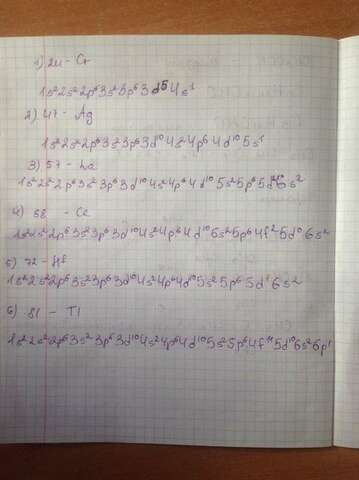 1) 24 - Cr
1s²2s²2p⁶3s²3p⁶3d⁵4s¹
2) 47 - Ag
1s²2s²2p⁶3s²3p⁶3d¹⁰4s²4p⁶4d¹⁰5s¹
3) 57 - La
1s²2s²2p⁶3s²3p⁶3d¹⁰4s²4p⁶4d¹⁰5s²5p⁶5d 6s²
4) 58 - Ce
1s²2s²2p⁶3s²3p⁶3d¹⁰4s²4p⁶4d¹⁰5s²5p⁶4f²5d⁰6s²
5) 72 - Hf
1s²2s²2p⁶3s²3p⁶3d¹⁰4s²4p⁶4d¹⁰5s²5p⁶5d 6s²
6) 81 - Tl
1s²2s²2p⁶3s²3p⁶3d¹⁰4s²4p⁶4d¹⁰5s²5p⁶4f¹⁴5d¹⁰6s²6p¹